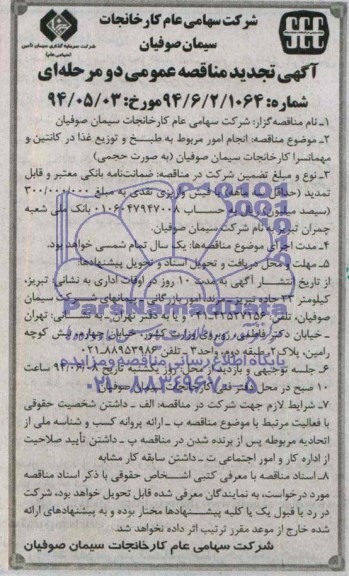 شرکت سهامی عام کارخانجات
سیمان صوفیان
شرکت سرمایه گذاری سیمان تأمین
(سهامی عام)
آگهی تجدید مناقصه عمومی دو مرحله‌ای
شماره: ۹۴/۶/۲/۱۰۶۴مورخ: ۹۴/۰۵/۰۳
۱ـ نام مناقصه‌گزار: شرکت سهامی عام کارخانجات سیمان صوفیان
۲ـ موضوع مناقصه: انجام امور مربوط به طبخ و توزیع غذا در کانتین و
مهمانسرا کارخانجات سیمان صوفیان (به صورت حجمی)
۳ـ نوع و مبلغ تضمین شرکت در مناقصه: ضمانت‌نامه بانکی معتبر و قابل
تمدید (حداقل سه ماهه) یا فیش واریزی نقدی به مبلغ ۳۰۰/۰۰۰/۰۰۰
(سیصد میلیون) ریال به حساب ۰۱۰۶۰۴۷۹۴۷۰۰۸ بانک ملی شعبه
چمران تبریز به نام شرکت سیمان صوفیان.
۴ـ مدت اجرای موضوع مناقصه‌ها: یک سال تمام شمسی خواهد بود.
۵ـ مهلت و محل دریافت و تحویل اسناد و تحویل پیشنهادها:
از تاریخ انتشار آگهی به مدت ۱۰ روز در اوقات اداری به نشانی: تبریز،
کیلومتر ۳۳ جاده تبریز ـ مرند، امور بازرگانی شرکت سیمان
صوفیان، تلفن و یا دفتر تهران، به نشانی: تهران
ـ خیابان دکتر فاطمی، روبروی وزارت کشور، خیابان چهارم، نبش کوچه
رامین، پلاک ۲، طبقه دوم، واحد ۳ ـ تلفن ۸۸۹۵۳۹۸۶ـ۰۲۱
۶ـ جلسه توجیهی و بازدید از محل: روز یکشنبه تاریخ ساعت
۱۰ صبح در محل دفتر فنی کارخانجات سیمان صوفیان
۷ـ شرایط لازم جهت شرکت در مناقصه: الف ـ داشتن شخصیت حقوقی
با فعالیت مرتبط با موضوع مناقصه ب ـ ارائه پروانه کسب و شناسه ملی از
اتحادیه مربوطه پس از برنده شدن در مناقصه پ ـ داشتن تأیید صلاحیت
از اداره کار و امور اجتماعی ت ـ داشتن سابقه کار مشابه
۸ـ اسناد مناقصه با معرفی کتبی اشخاص حقوقی با ذکر اسناد مناقصه
مورد درخواست، به نمایندگان معرفی شده قابل تحویل خواهد بود، شرکت
در رد یا قبول یک یا کلیه پیشنهادها مختار بوده و به پیشنهادهای ارائه
شده خارج از موعد مقرر ترتیب اثر داده نخواهد شد.
شرکت سهامی عام کارخانجات سیمان صوفیان
ParsNamadData
پایگاه اطلاع رسانی مناقصه و مزایده
۰۲۱-۸۸۳۴۹۶۷۰-۵